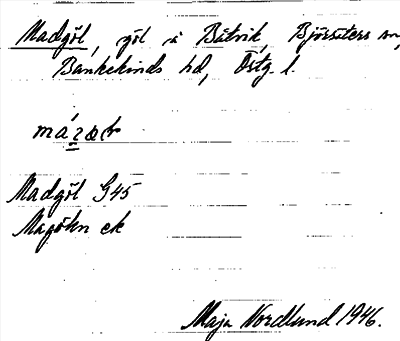 Madgöl, göl å Båtvik, Björsäters sn,
Bankekinds hd, Östg. l.
Madgöl G45
Magöln ek
Maja Nordlund 1946.